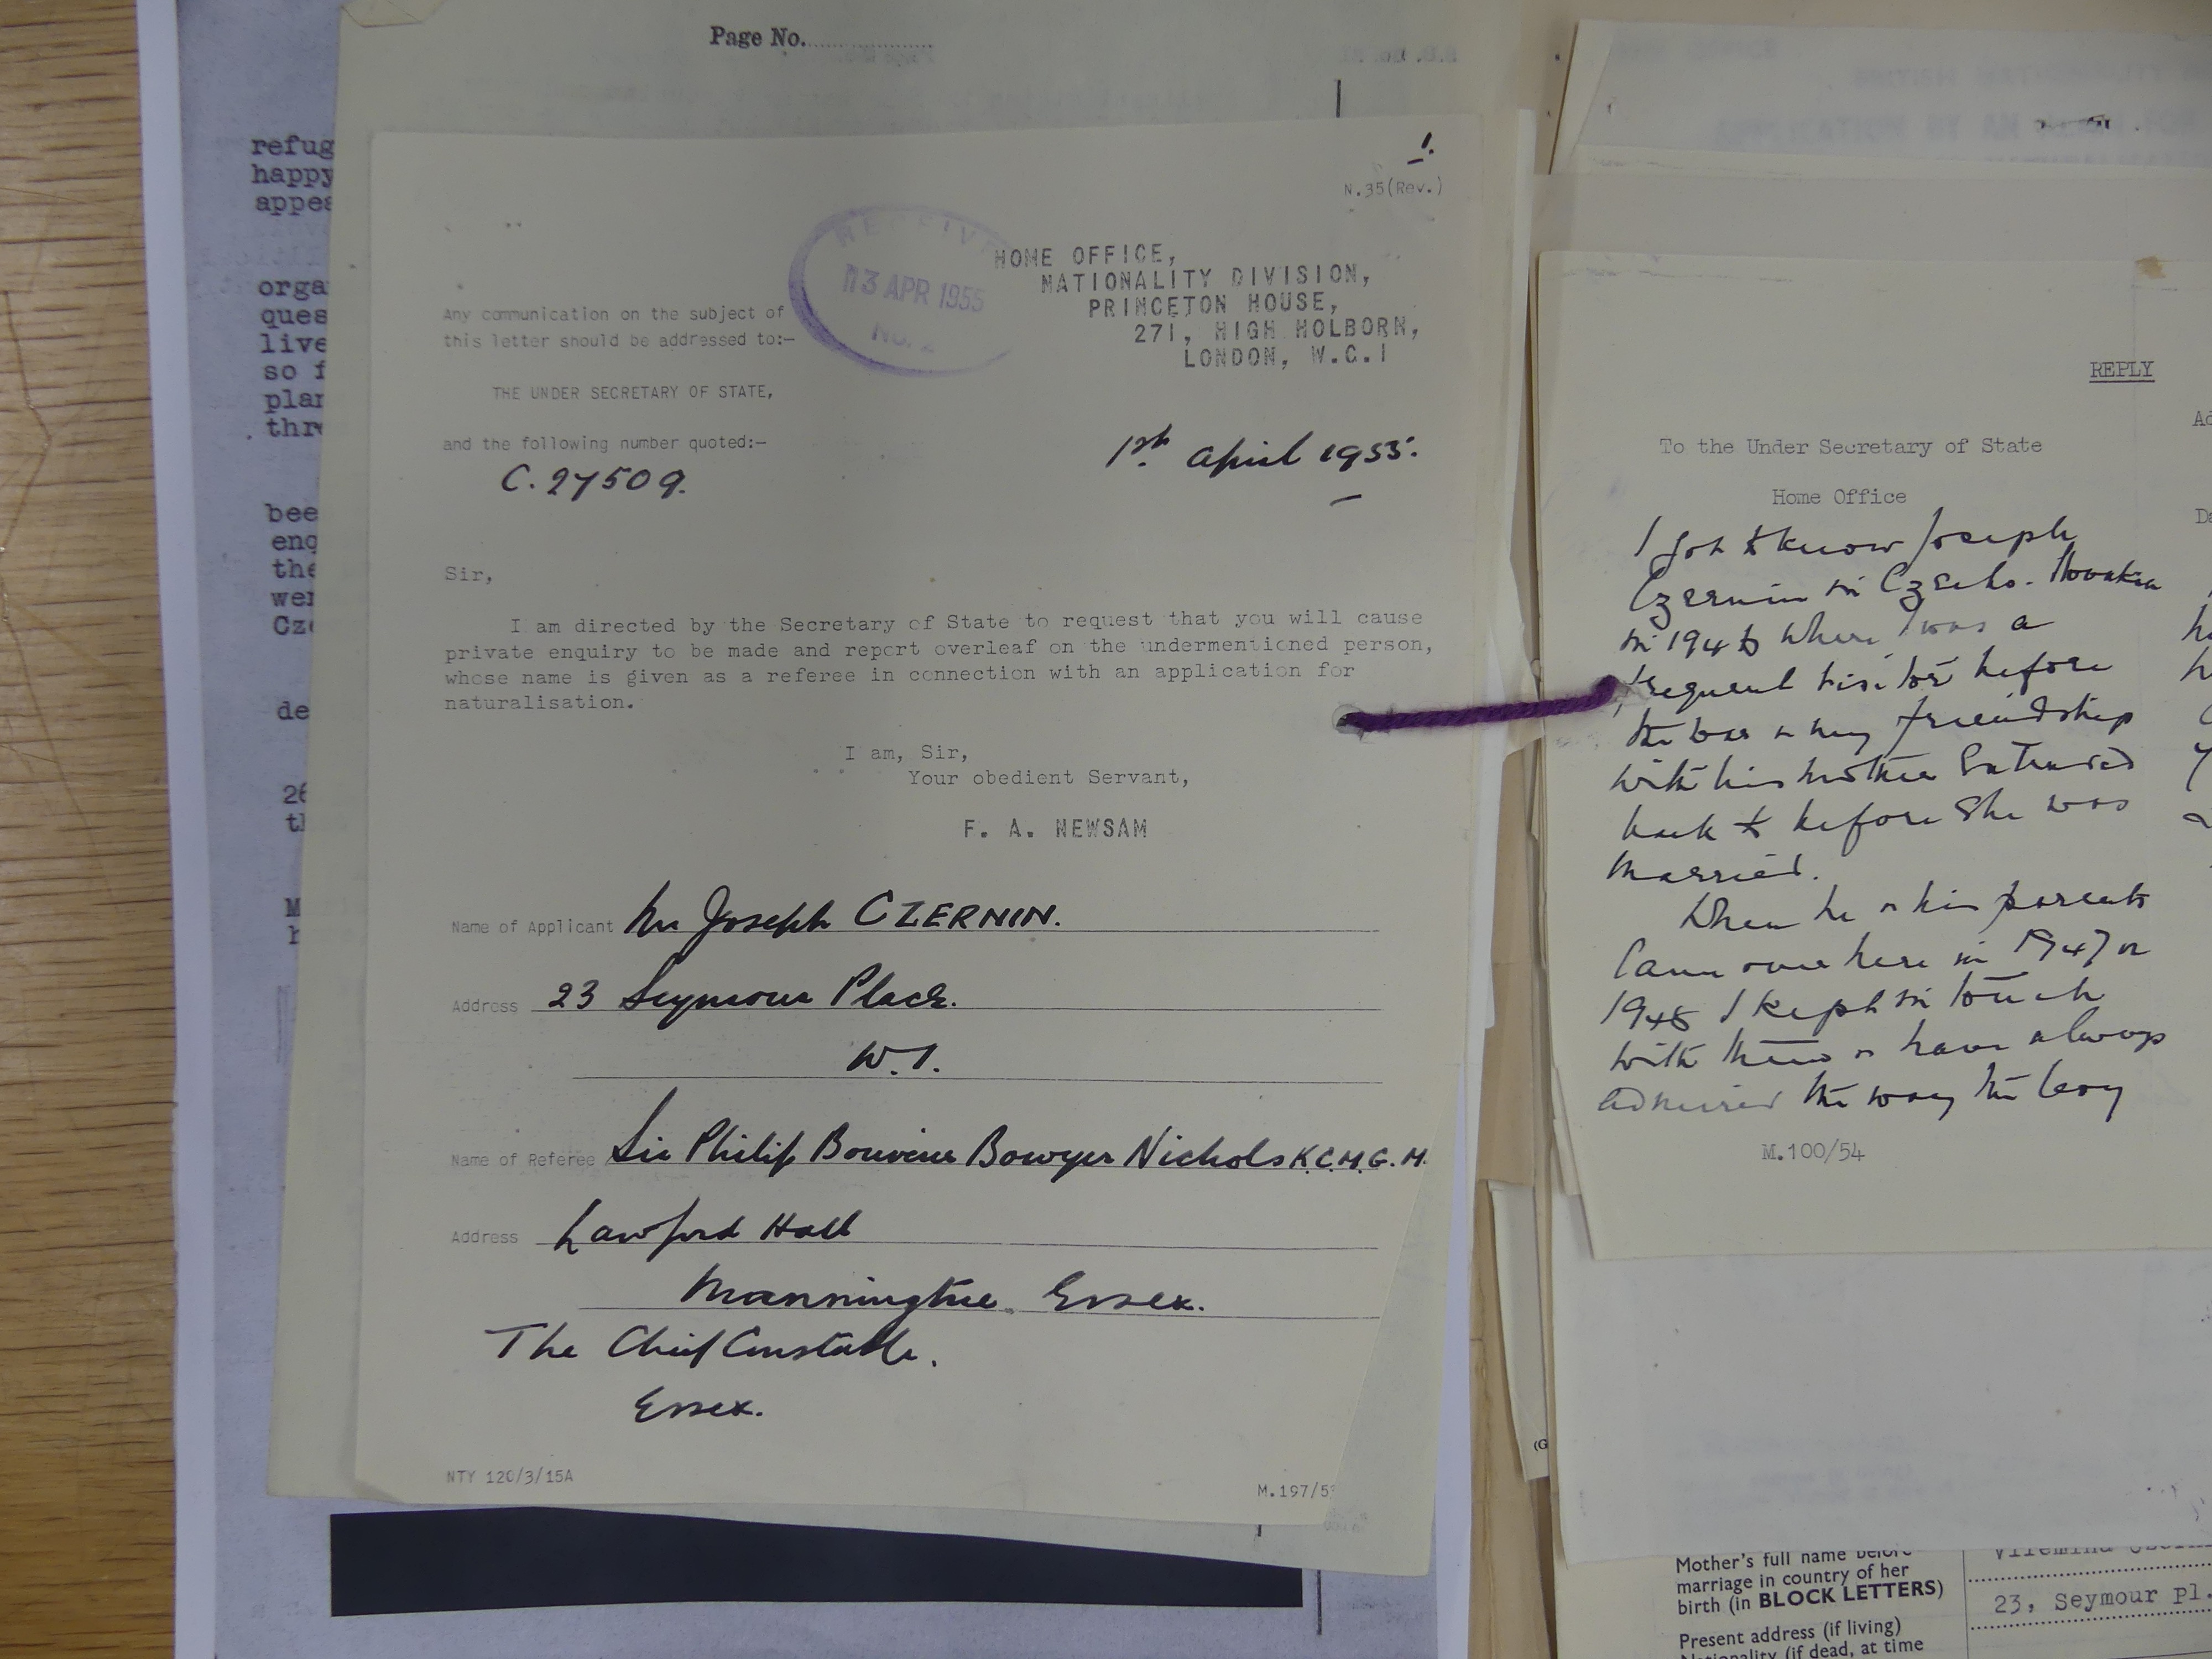 Page No.
refug
happy
appea
orga
ques
live
so f
plan
thr
bee
enq
the
wer
Cze
de
26
th
M
h
1.
N.35(Rev.)
13 APR 1955
No. 2
HOME OFFICE,
NATIONALITY DIVISION,
PRINCETON HOUSE,
271, HIGH HOLBORN,
LONDON, W.C.1
Any communication on the subject of
this letter should be addressed to:-
THE UNDER SECRETARY OF STATE,
and the following number quoted:-
C. 27509.
1st. April 1955.
Sir,
I am directed by the Secretary of State to request that you will cause
private enquiry to be made and report overleaf on the undermentioned person,
whose name is given as a referee in connection with an application for
naturalisation.
I am, Sir,
Your obedient Servant,
F. A. NEWSAM
Name of Applicant Mr Joseph CZERNIN.
Address 23 Seymour Place.
W.1.
Name of Referee Sir Philip Bouverie Bowyer Nichols K.C.M.G. M.
Address Lawford Hall
Manningtree Essex.
The Chief Constable.
Essex.
NTY 120/3/15A
M.197/5
REPLY
To the Under Secretary of State
Home Office
I got to know Joseph
Czernin in Czecho-Slovakia
in 1946 where I was a
frequent visitor before
the war & my friendship
with his mother extended
back to before she was
married.
When he & his parents
came over here in 1947 or
1948 I kept in touch
with them & have always
admired the way the boy
M.100/54
Mother's full name before
marriage in country of her
birth (in BLOCK LETTERS)
23, Seymour Pl.
Present address (if living)
Nationality (if dead, at time